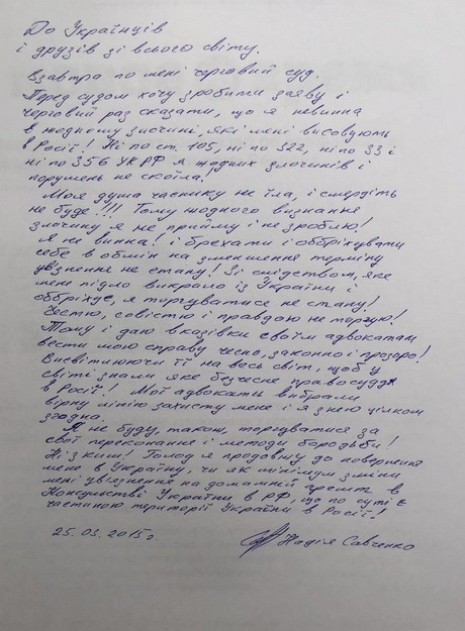 До Українців
і друзів зі всього світу.
Взавтра по мені черговий суд.
Перед судом хочу зробити заяву і
черговий раз сказати, що я невинна
в жодному злочині, які мені висовують
в Росії! Ні по ст. 105, ні по 322, ні по 33 і
ні по 356 УК РФ я жодних злочинів і
порушень не скоїла!
Моя душа часнику не їла, і смердіть
не буде!!! Тому жодного визнання
злочину я не прийму і не зроблю!
Я не винна! і брехати і оббріхувати
себе в обмін на зменшення терміну
ув'язнення не стану! Зі слідством, яке
мене підло викрало із України і
оббріхує, я торгуватися не стану!
Честю, совістю і правдою не торгую!
Тому і даю вказівки своїм адвокатам
вести мою справу чесно, законно і прозоро!
Висвітлюючи її на весь світ, щоб у
світі знали яке безчесне правосуддя
в Росії! Мої адвокати вибрали
вірну лінію захисту мене і я з нею цілком
згодна.
Я не буду, також, торгуватися за
свої переконання і методи боротьби!
Ні з ким! Голод я продовжу до повернення
мене в Україну, чи як мінімум зміни
мені ув'язнення на домашній арешт в
Консульстві України в РФ, що по суті є
частиною території України в Росії!
25.03.2015 г Надія Савченко